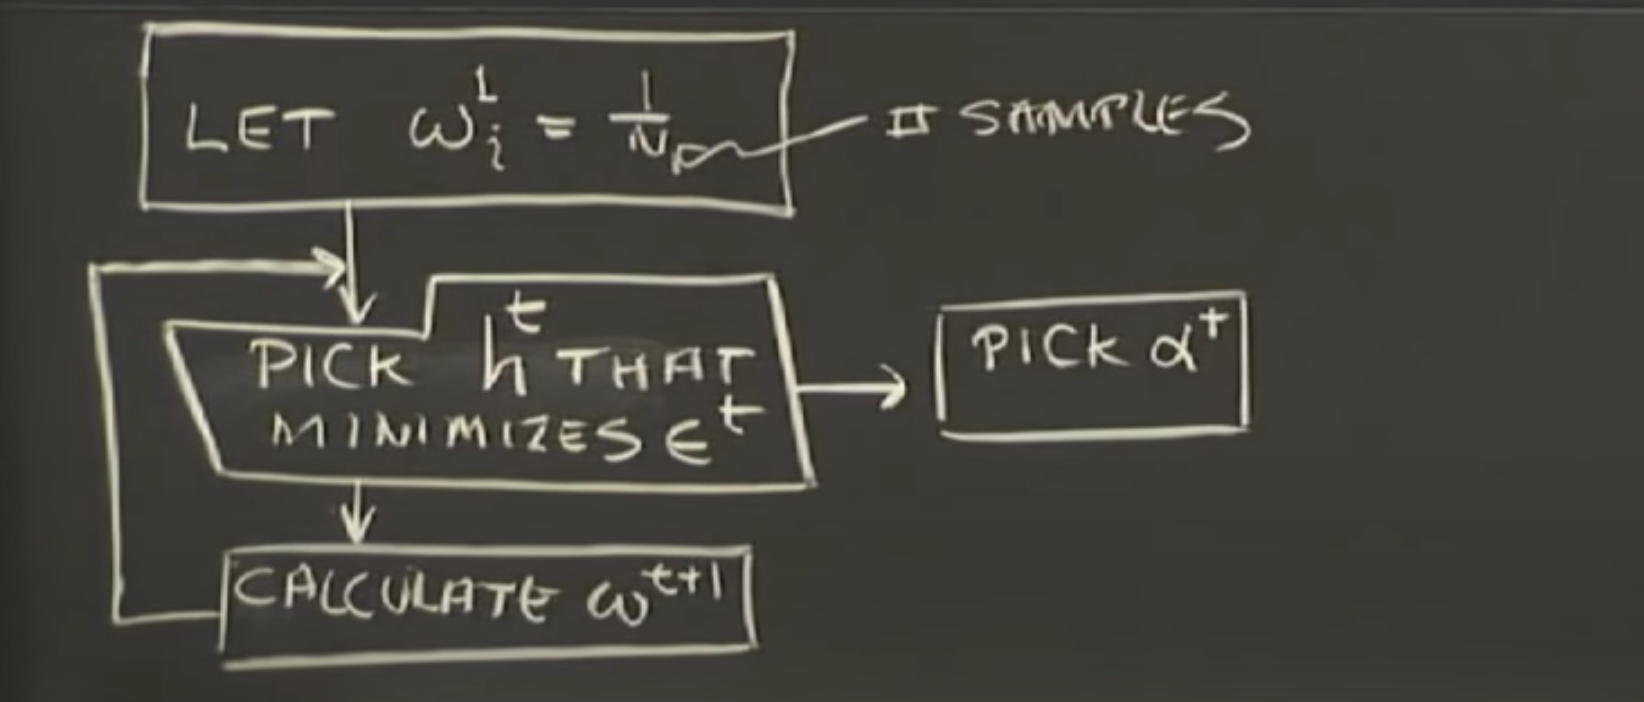 LET ω_i^1 = 1/N
# SAMPLES
PICK h^t THAT
MINIMIZES ϵ^t
PICK α^t
CALCULATE ω^{t+1}